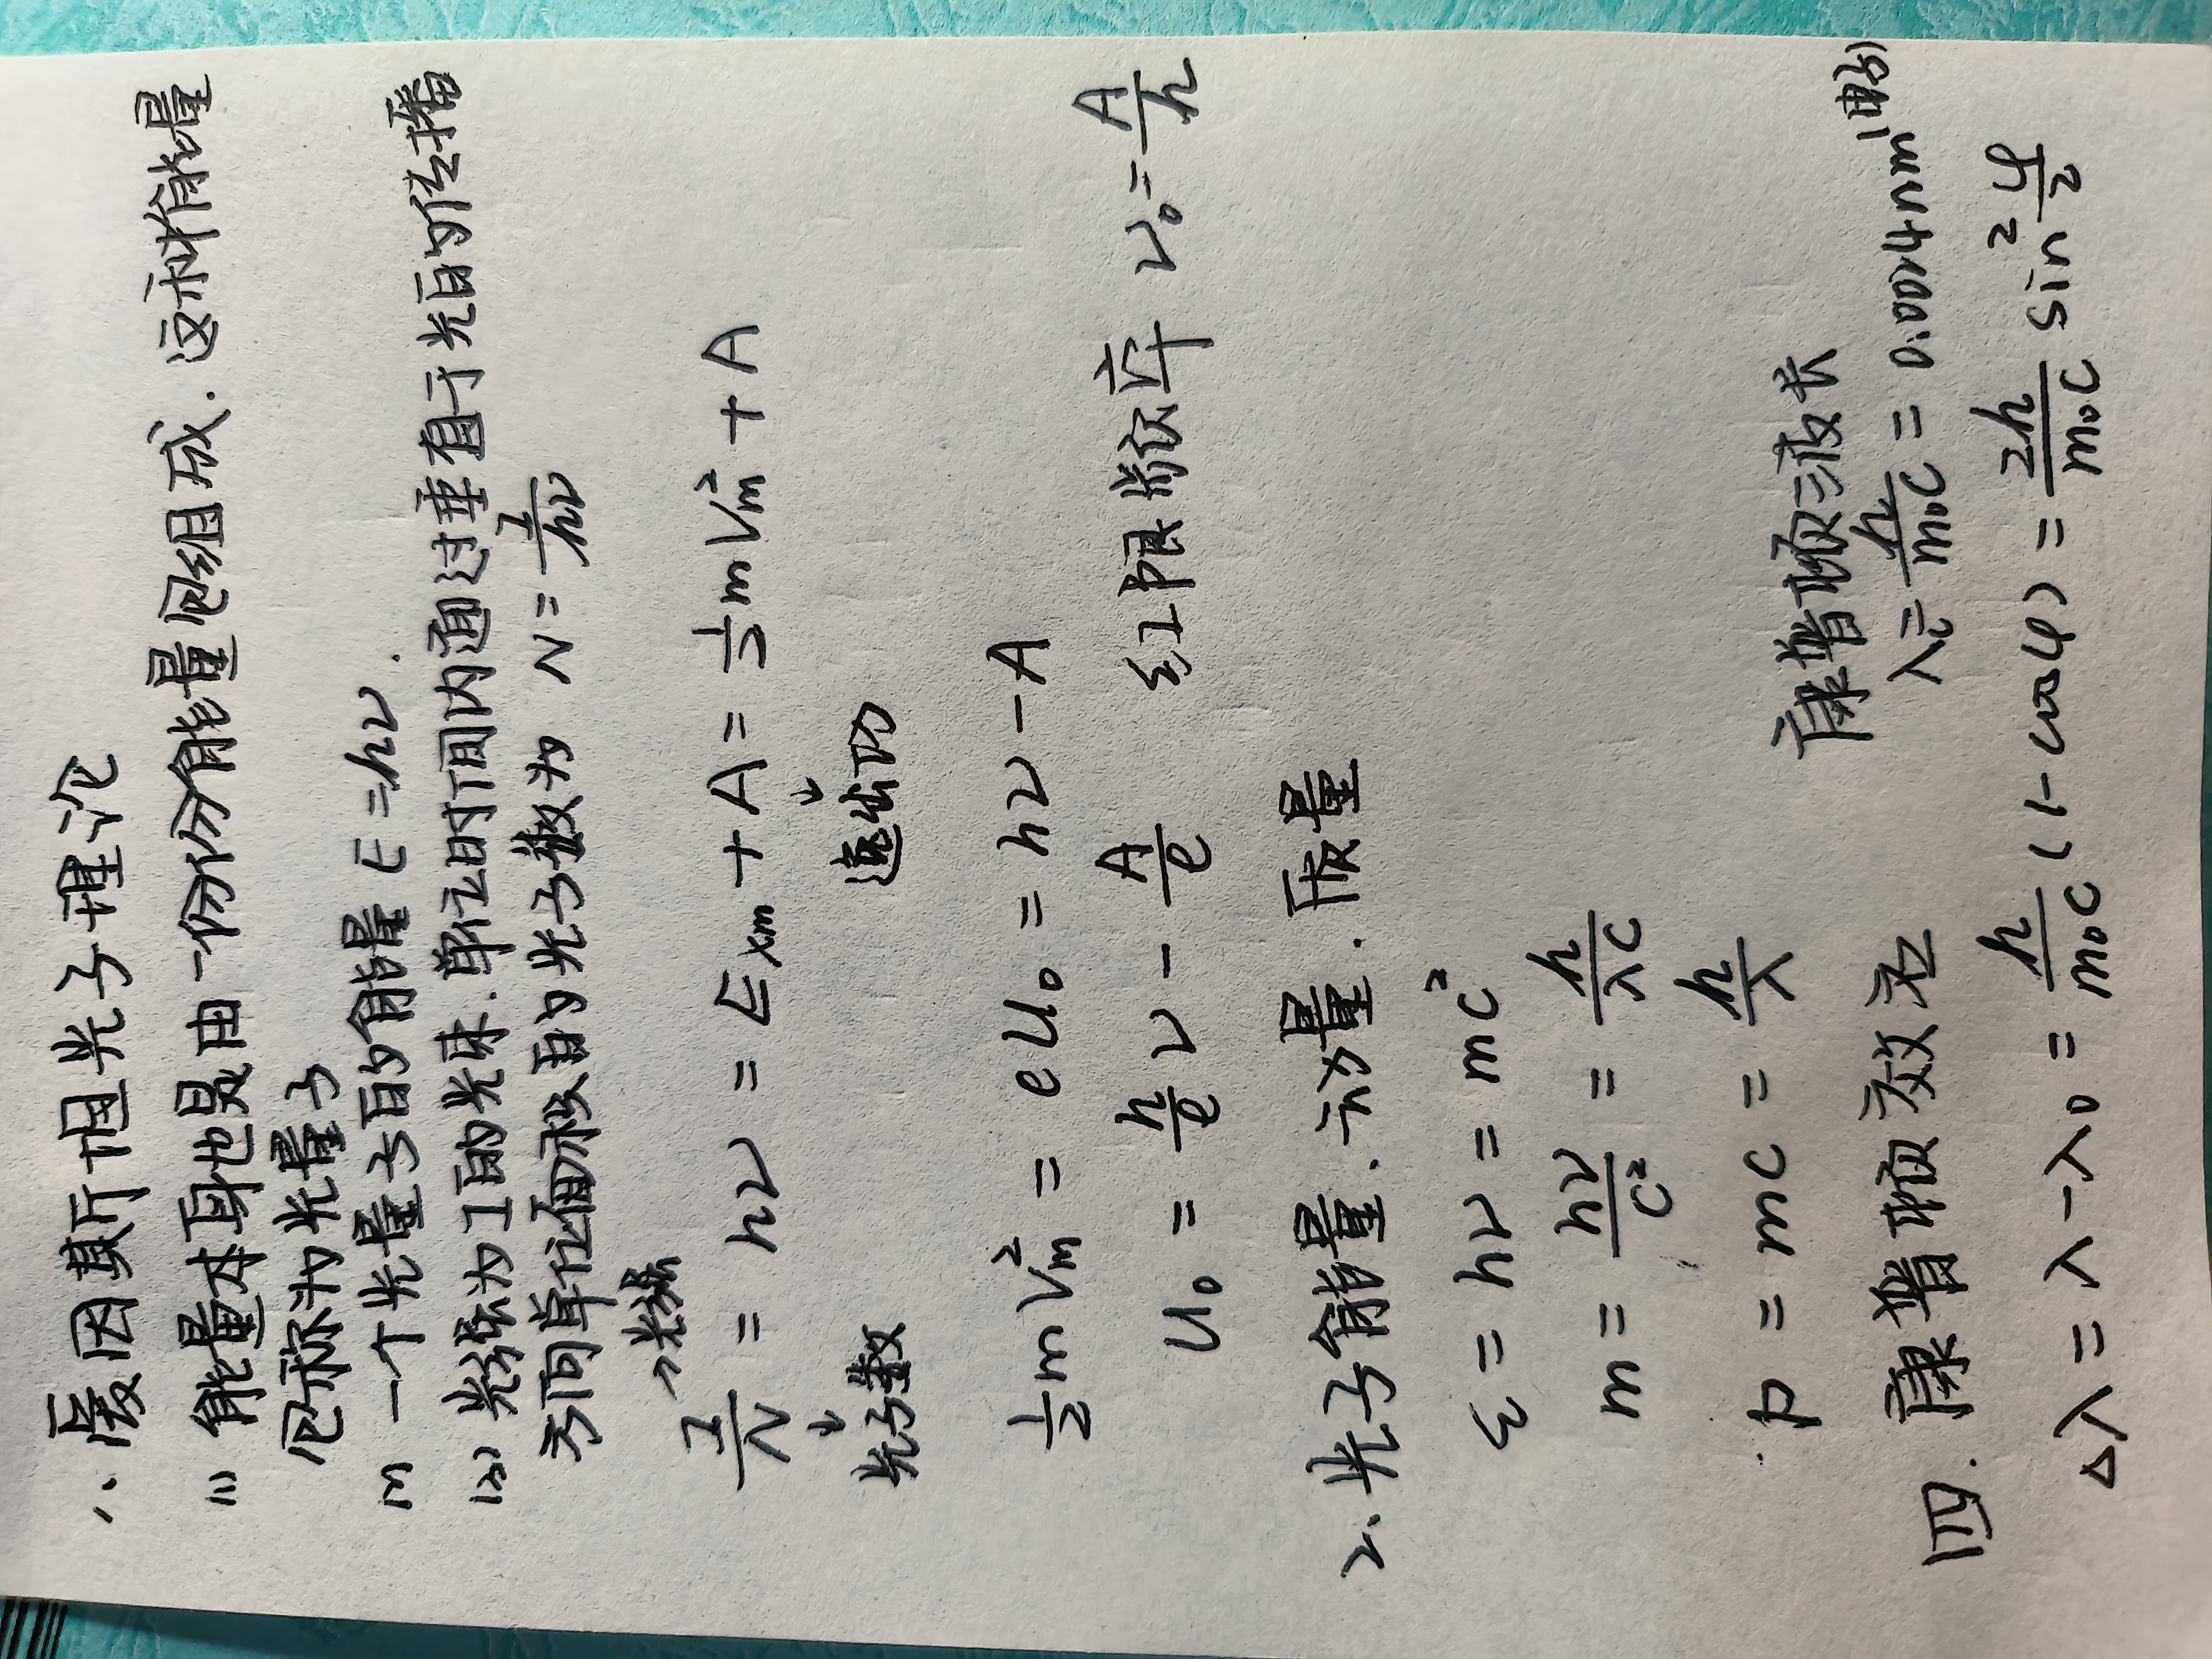 1、爱因斯坦光子理论
(1) 能量本身也是由一份份能量包组成. 这种能量
包称为光量子
(2) 一个光量子的能量 E = hν.
(3) 光强为I的光束. 单位时间内通过垂直于光的传播
方向单位面积的光子数为 N = I/hν
→光强
I/N = hν = E_km + A = 1/2 mV_m² + A
↓ ↓
光子数 逸出功
1/2 mV_m² = eU₀ = hν − A
U₀ = h/e ν − A/e 红限频率 ν₀ = A/h
2、光子能量、动量. 质量
ε = hν = mc²
m = hν/c² = h/λc
p = mc = h/λ
康普顿波长
λc = h/m₀c = 0.0024nm (电子)
四. 康普顿效应
Δλ = λ − λ₀ = h/m₀c (1−cosφ) = 2h/m₀c sin² φ/2